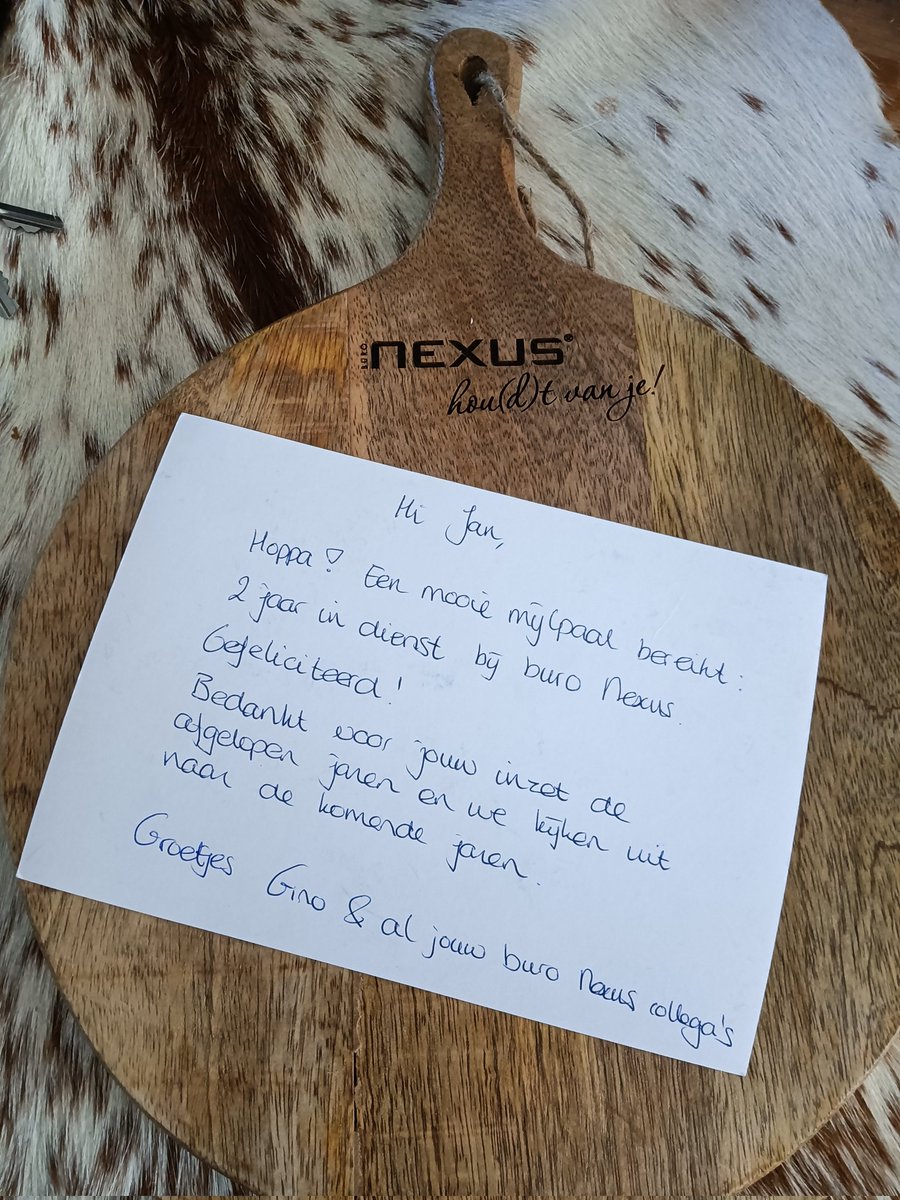 buro NEXUS®
hou(d)t van je!
Hi Jan,
Hoppa! Een mooie mijlpaal bereikt:
2 jaar in dienst bij buro Nexus.
Gefeliciteerd!
Bedankt voor jouw inzet de
afgelopen jaren en we kijken uit
naar de komende jaren.
Groetjes Gino & al jouw buro Nexus collega's